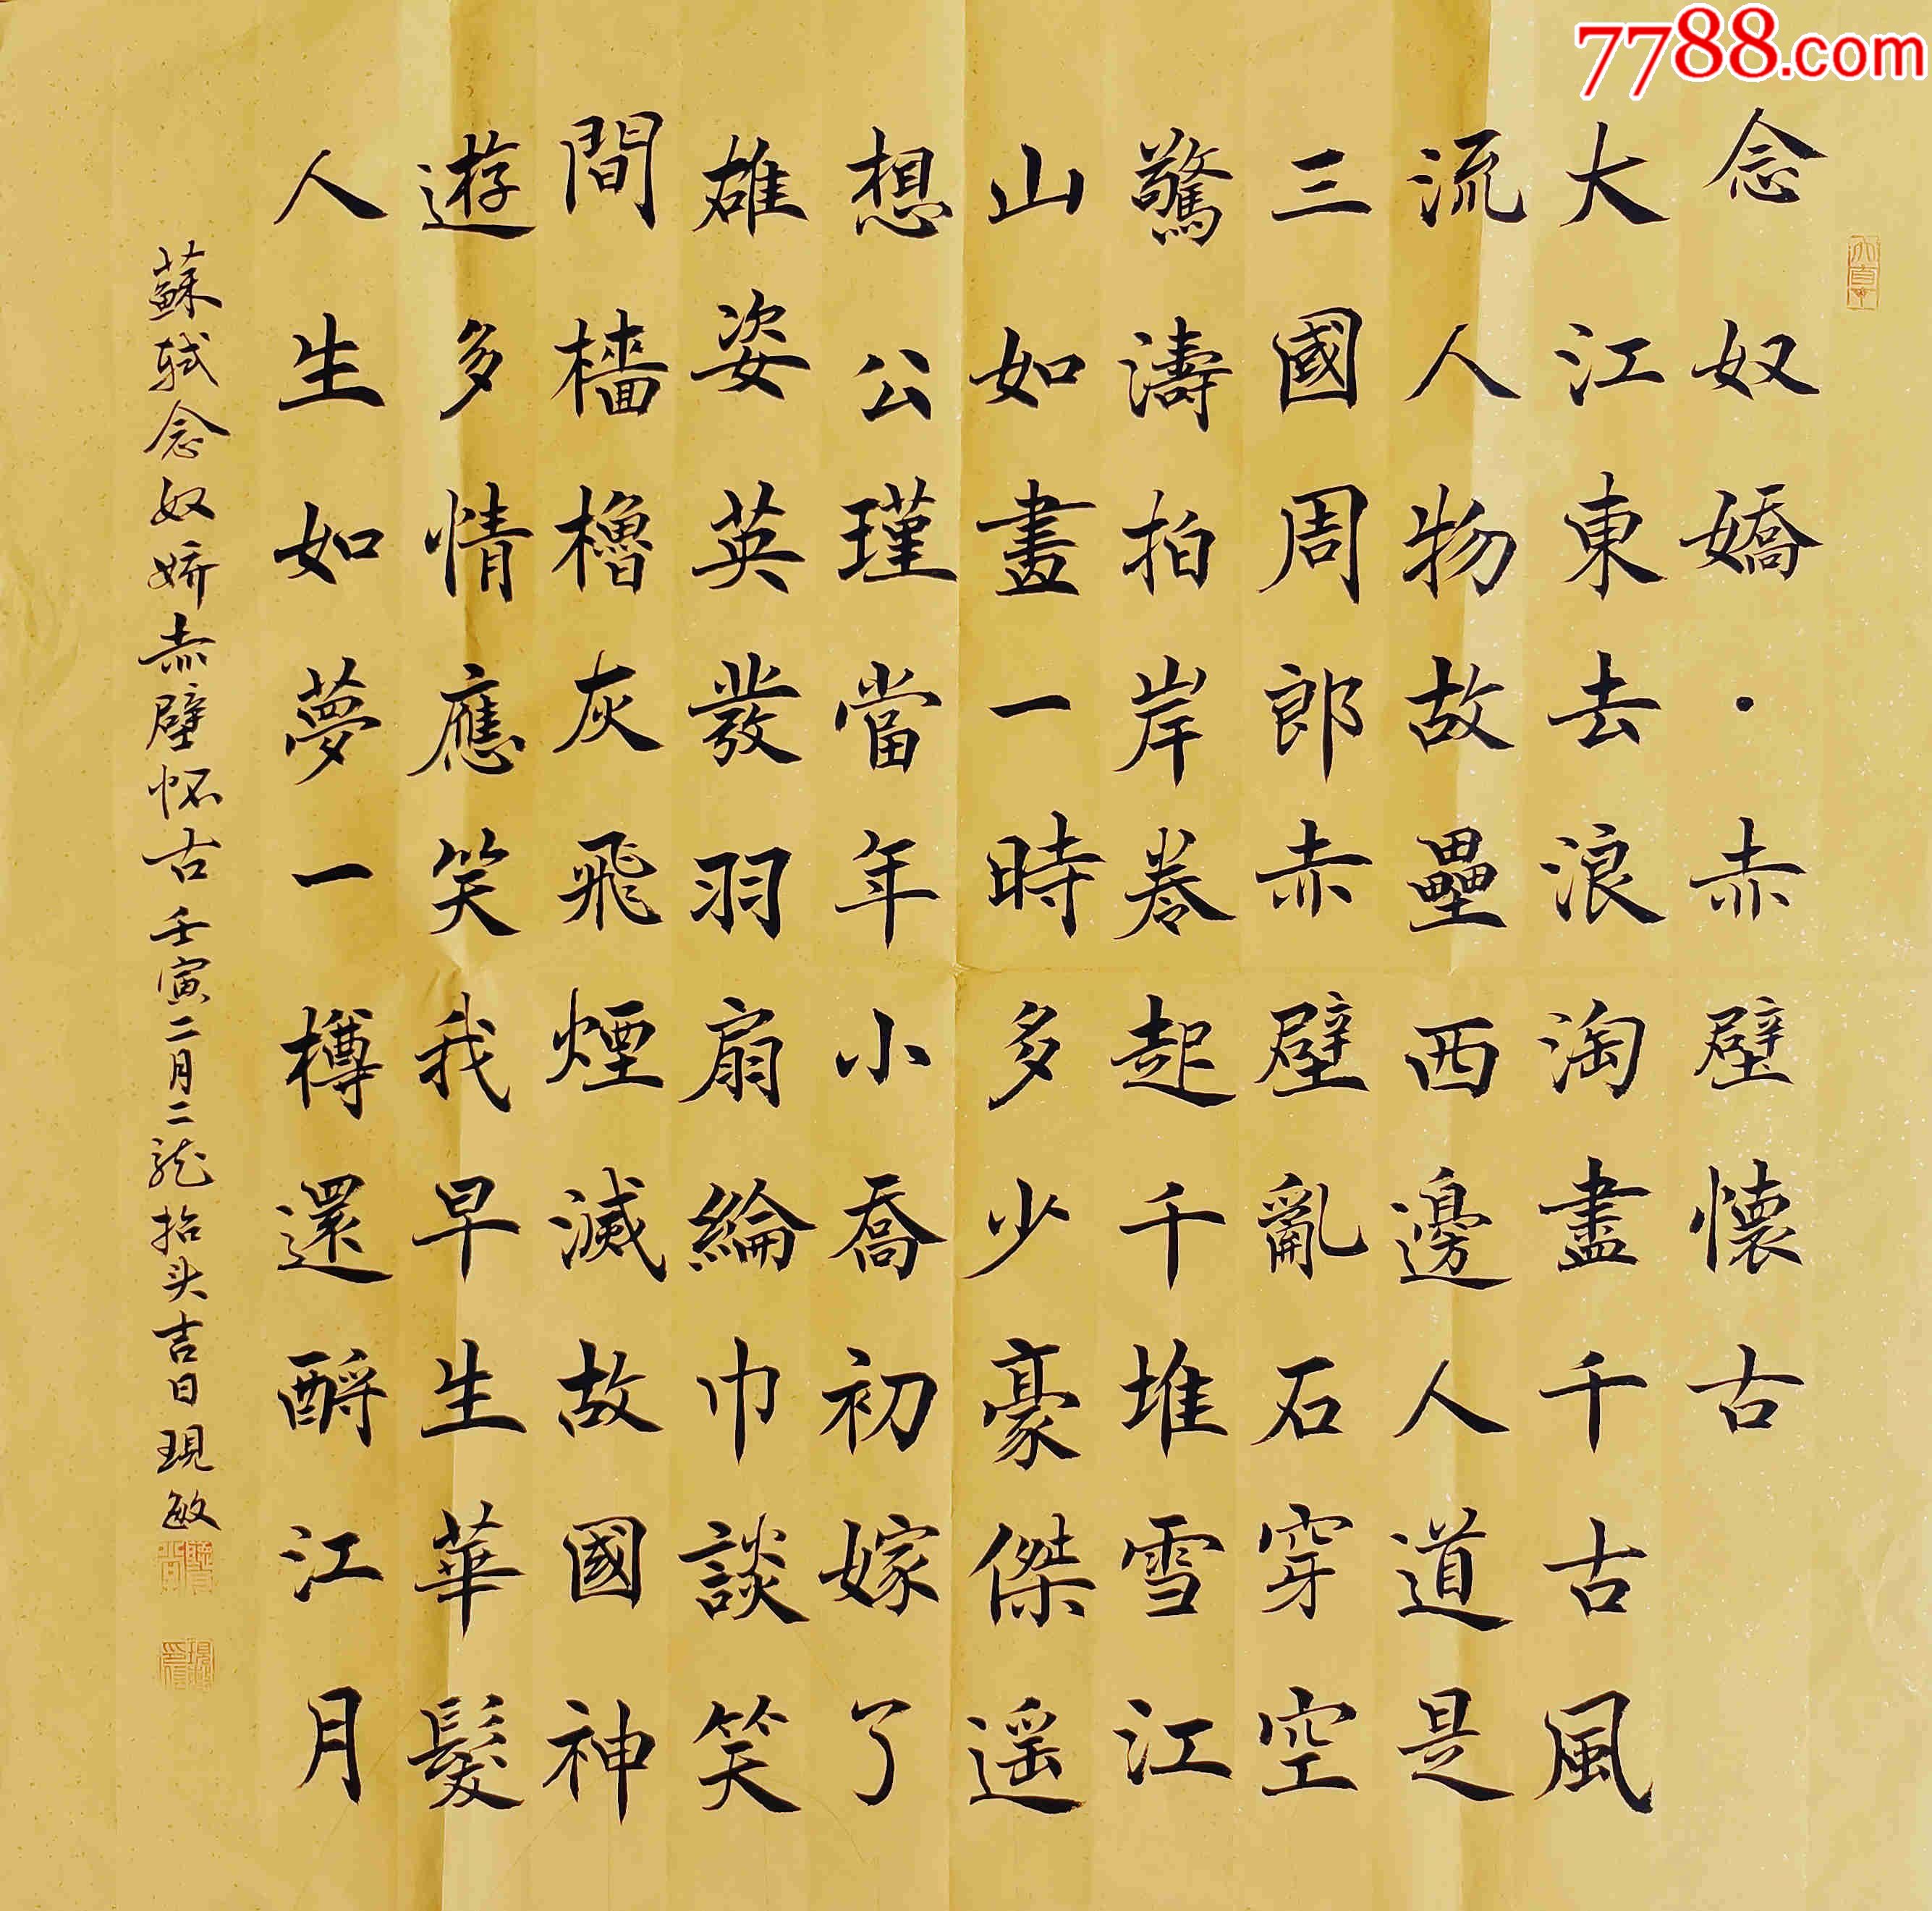 7788.com
念奴嬌·赤壁懷古
大江東去浪淘盡千古風
流人物故壘西邊人道是
三國周郎赤壁亂石穿空
驚濤拍岸卷起千堆雪江
山如畫一時多少豪傑遥
想公瑾當年小喬初嫁了
雄姿英發羽扇綸巾談笑
間檣櫓灰飛煙滅故國神
遊多情應笑我早生華髮
人生如夢一樽還酹江月
蘇軾念奴娇赤壁怀古 壬寅二月二龙抬头吉日現敏